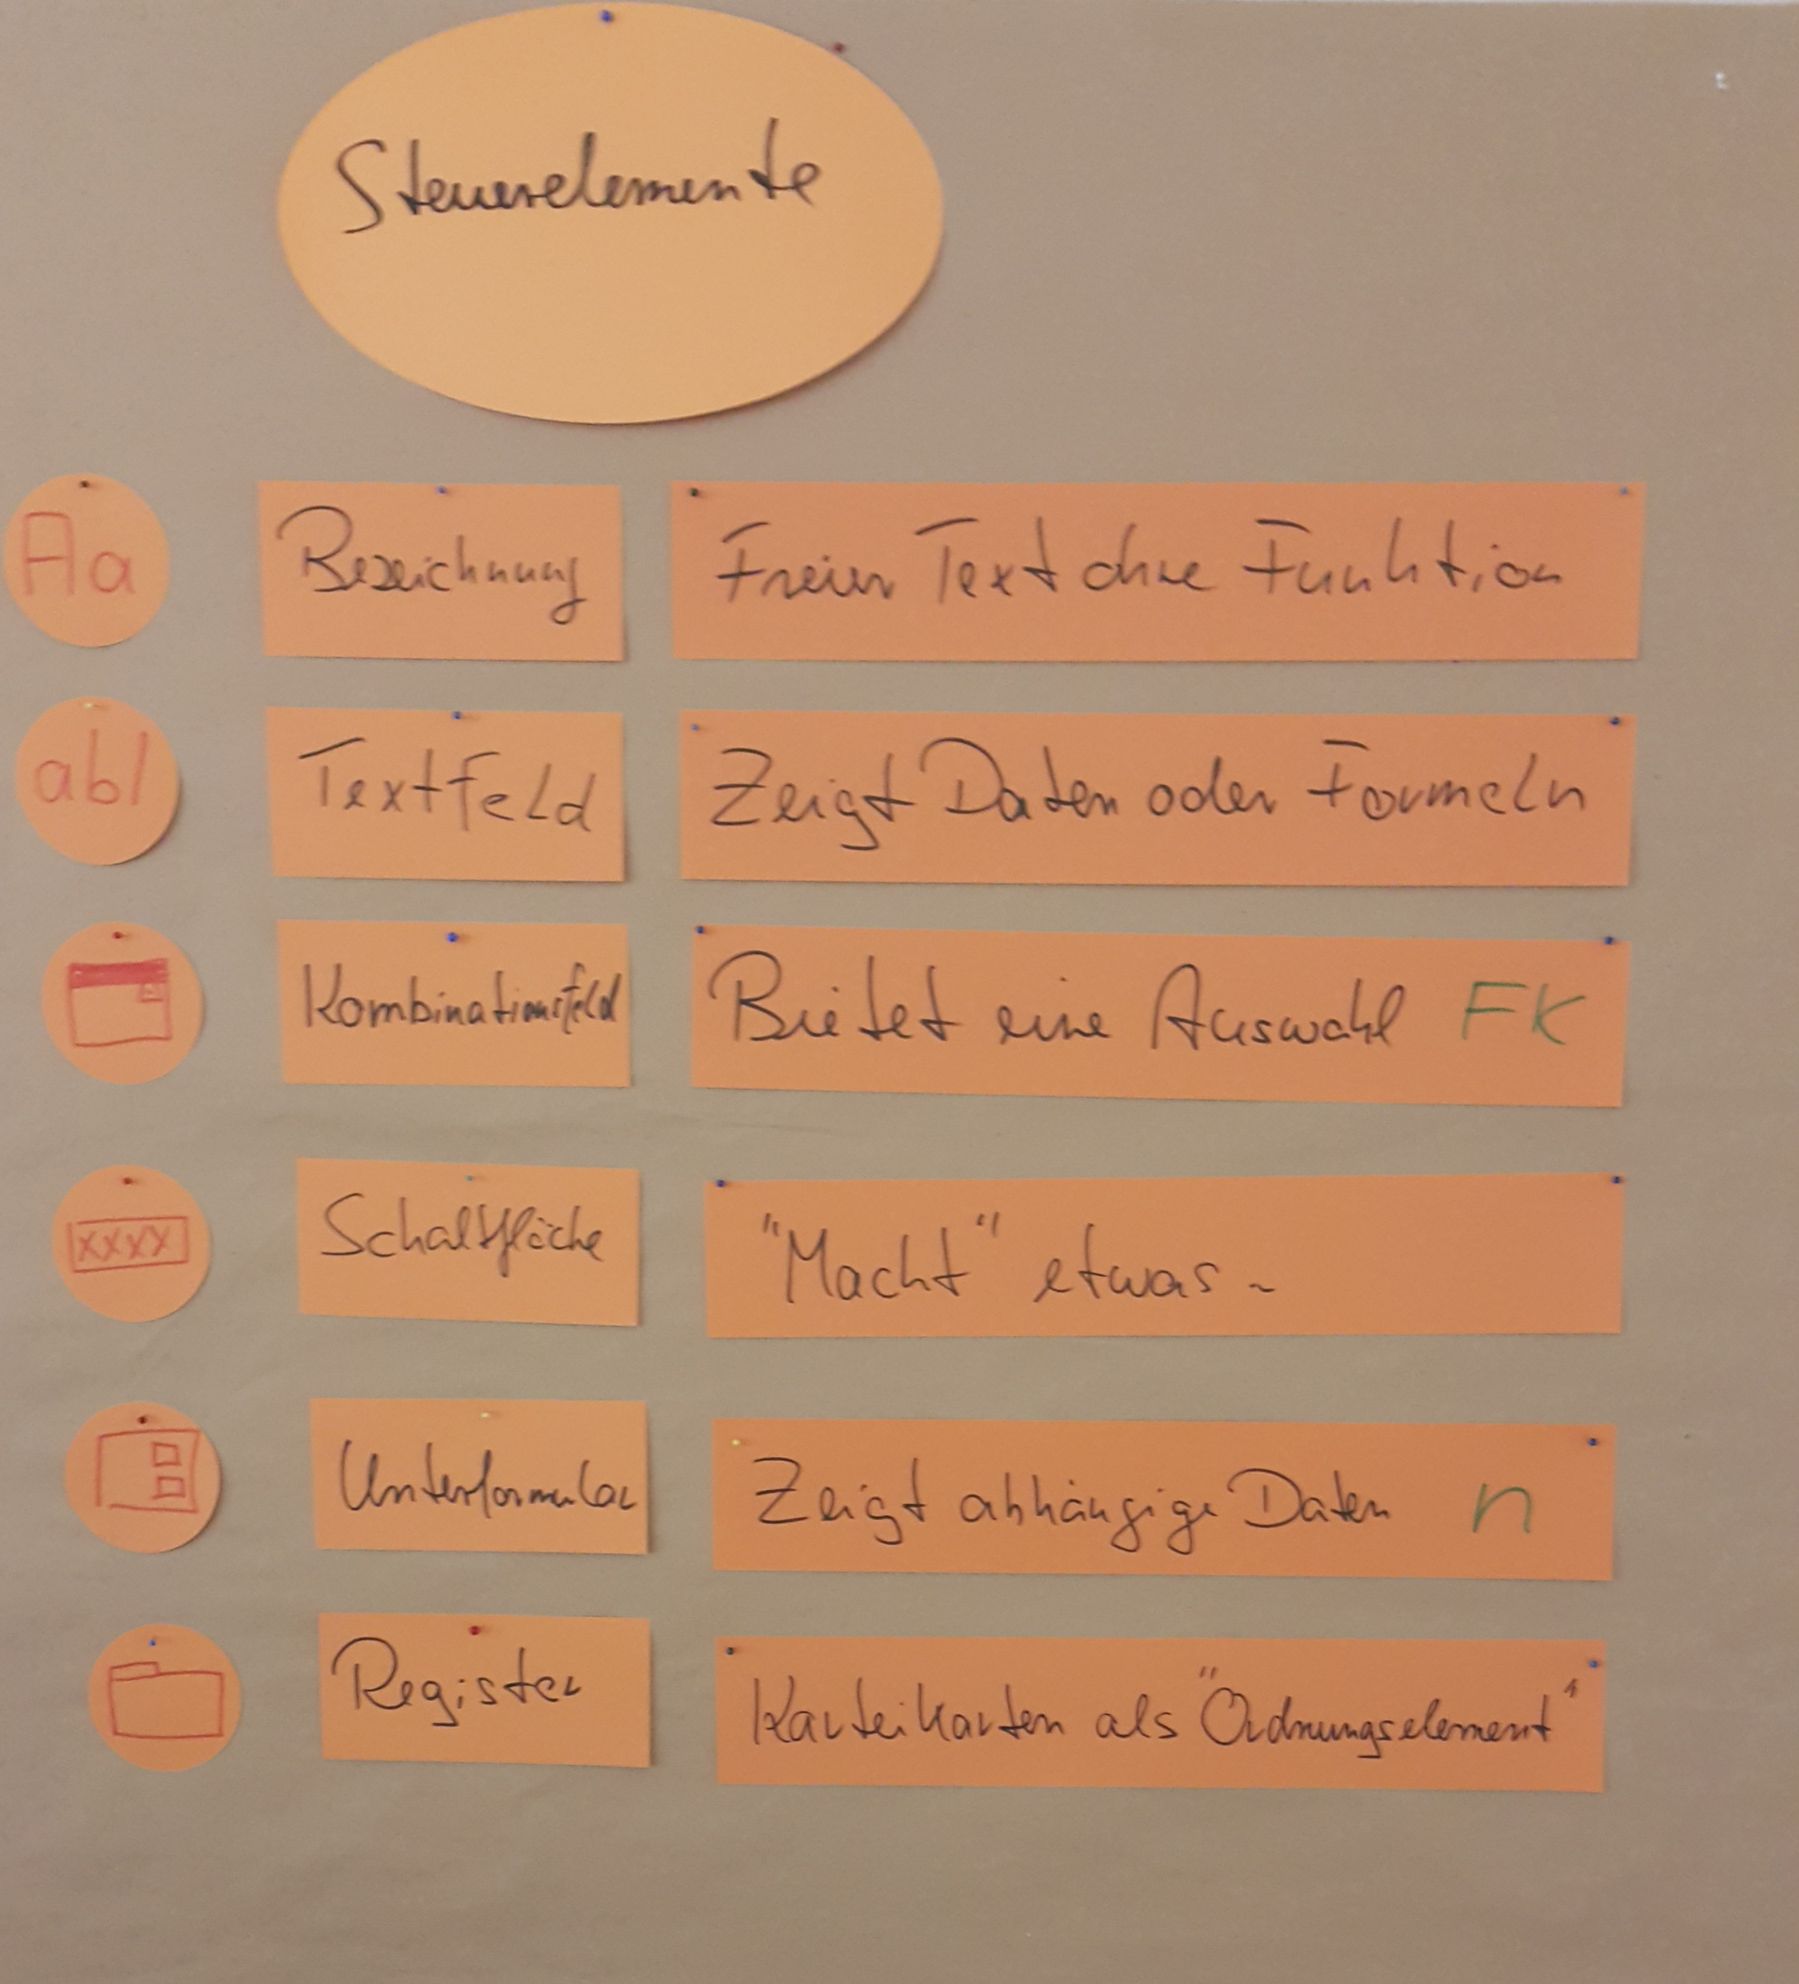 Steuerelemente
Aa Bezeichnung Freier Text ohne Funktion
abl Textfeld Zeigt Daten oder Formeln
Kombinationsfeld Bietet eine Auswahl FK
xxxx Schaltfläche "Macht" etwas ~
Unterformular Zeigt abhängige Daten n
Register Karteikarten als "Ordnungselement"